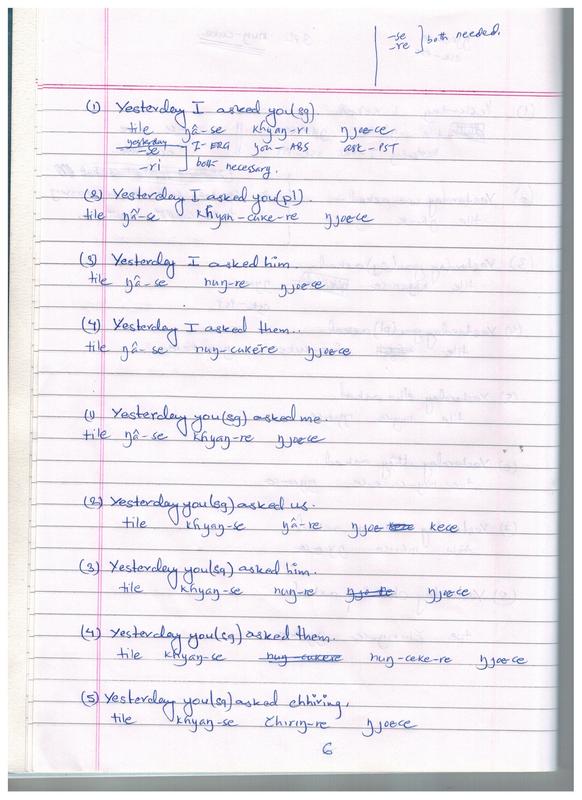 -se ] both needed.
-re
(1) Yesterday I asked you(sg)
tile ŋâ-se khyaŋ-ri ŋjoece
yesterday I-ERG you-ABS ask-PST
-se ] both necessary.
-ri
(2) Yesterday I asked you(pl).
tile ŋâ-se khyaŋ-cuke-re ŋjoece
(3) Yesterday I asked him.
tile ŋâ-se nuŋ-re ŋjoece
(4) Yesterday I asked them..
tile ŋâ-se nuŋ-cukere ŋjoece
(1) Yesterday you(sg) asked me.
tile ŋâ-se khyaŋ-re ŋjoece
(2) Yesterday you(sg) asked us.
tile khyaŋ-se ŋâ-re ŋjoe kece
(3) Yesterday you(sg) asked him.
tile khyaŋ-se nuŋ-re ŋjoece
(4) Yesterday you(sg) asked them.
tile khyaŋ-se nuŋ-cukere nuŋ-ceke-re ŋjoece
(5) Yesterday you(sg) asked chhiring,
tile khyaŋ-se chiriŋ-re ŋjoece
6